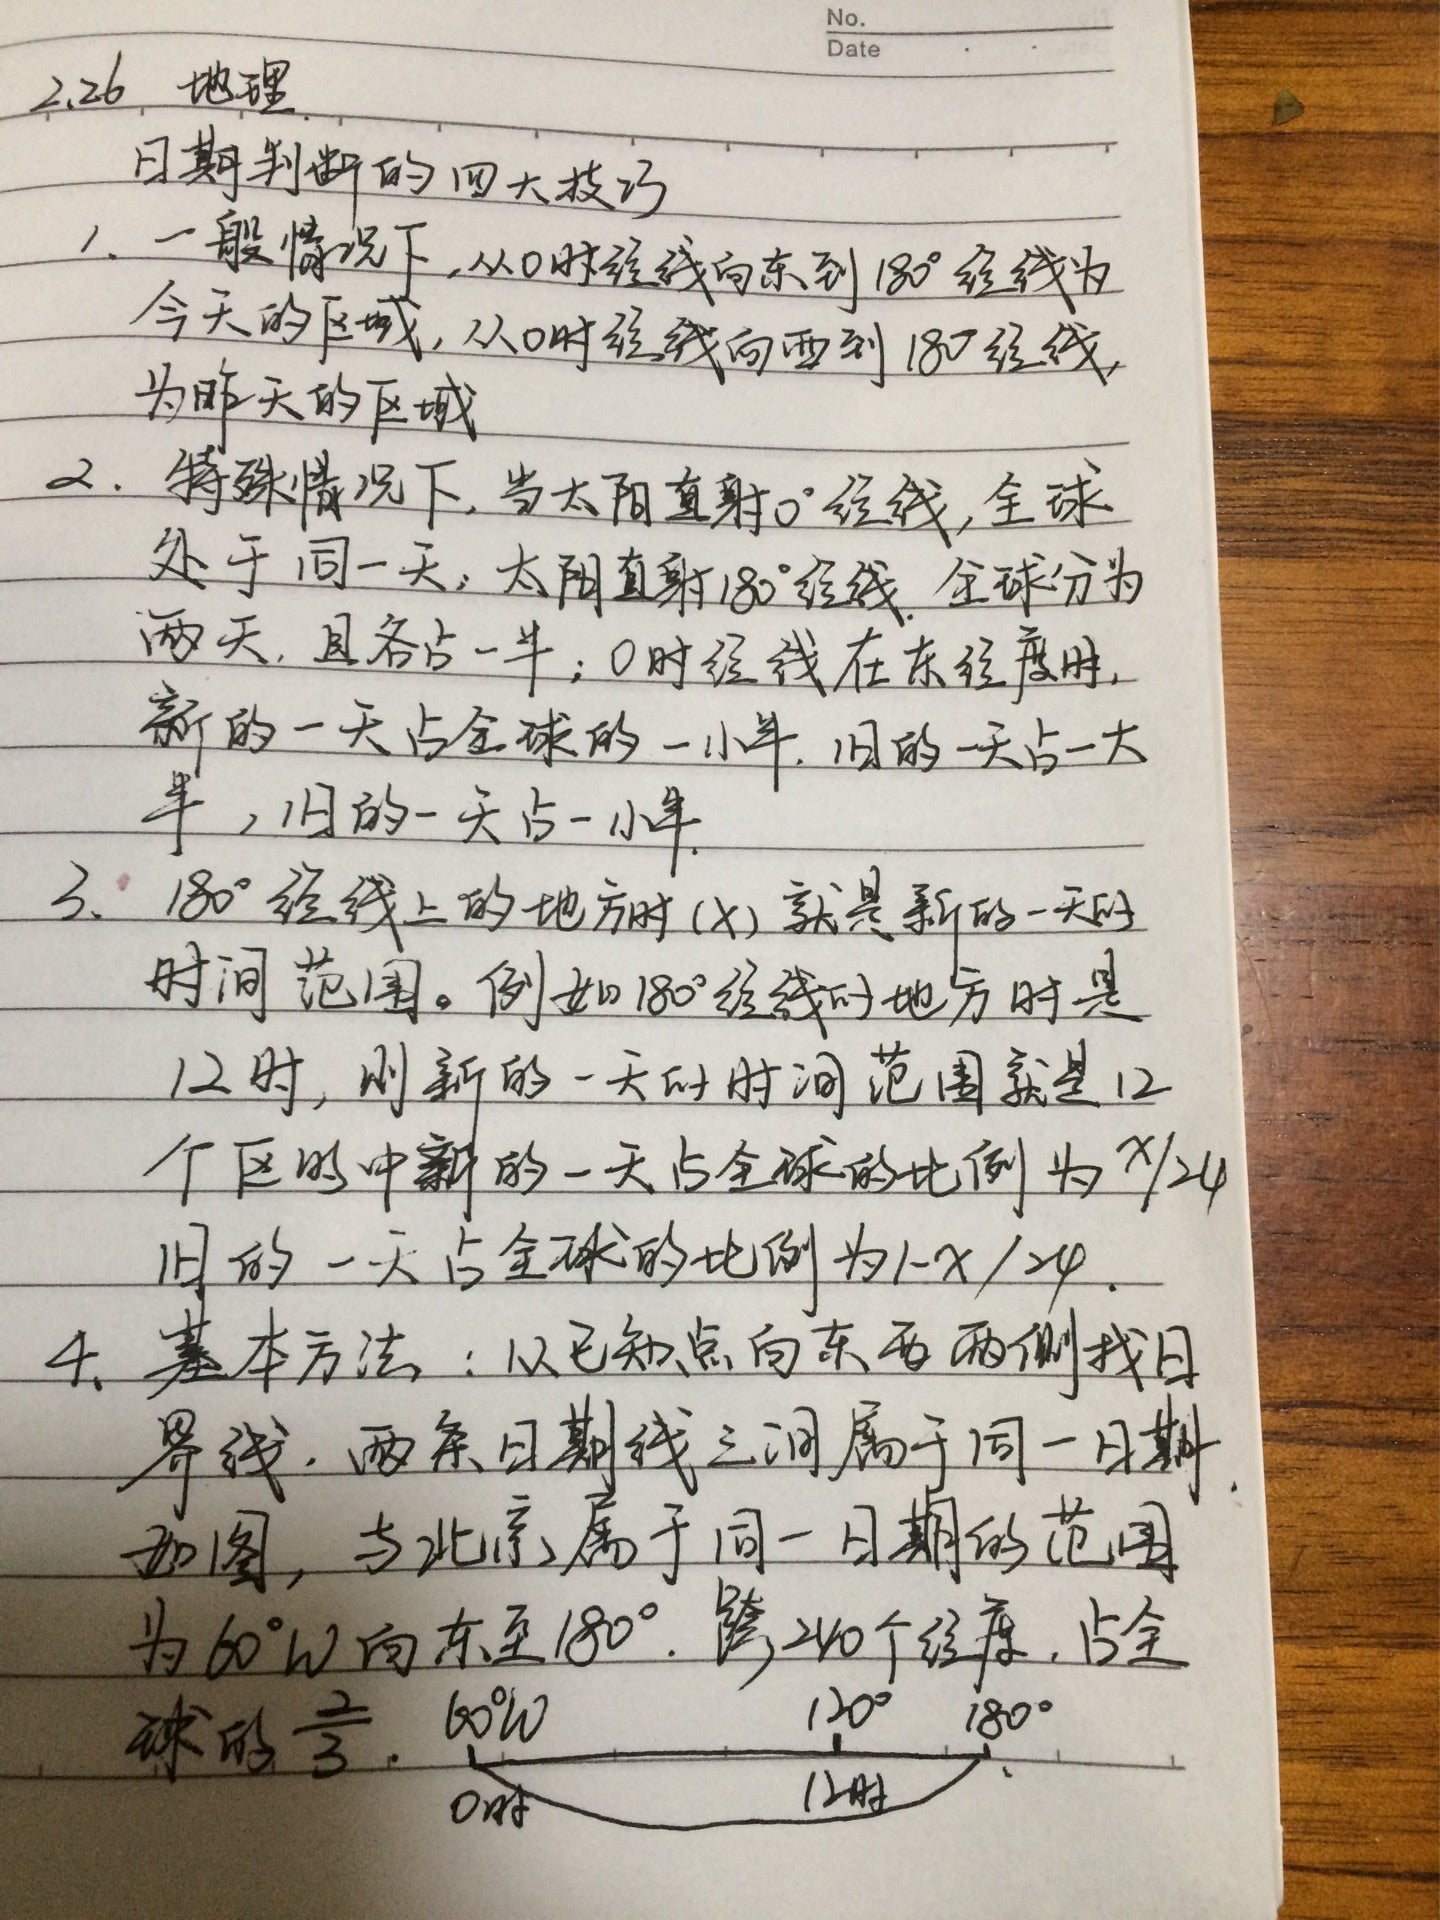 No.
Date
2.26 地理
日期判断的四大技巧
1. 一般情况下,从0时经线向东到180°经线为
今天的区域,从0时经线向西到180°经线,
为昨天的区域
2. 特殊情况下,当太阳直射0°经线,全球
处于同一天;太阳直射180°经线.全球分为
两天,且各占一半;0时经线在东经度时,
新的一天占全球的一小半.旧的一天占一大
半,旧的一天占一小半.
3、180°经线上的地方时(X)就是新的一天的
时间范围。例如180°经线的地方时是
12时,则新的一天的时间范围就是12
个区的中新的一天占全球的比例为X/24
旧的一天占全球的比例为1-X/24.
4、基本方法:以已知点向东西两侧找日
界线.两条日期线之间属于同一日期.
如图,与北京属于同一日期的范围
为60°W向东至180°.跨240个经度.占全
球的2/3.
60°W 120° 180°
0时 12时